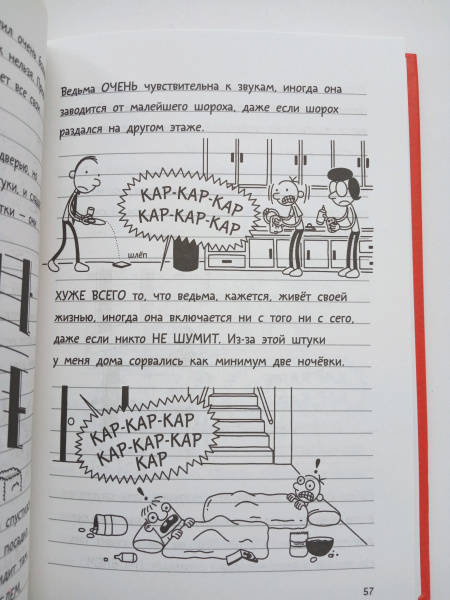 Ведьма ОЧЕНЬ чувствительна к звукам, иногда она
заводится от малейшего шороха, даже если шорох
раздался на другом этаже.
КАР-КАР-КАР
КАР-КАР-КАР
шлёп
ХУЖЕ ВСЕГО то, что ведьма, кажется, живёт своей
жизнью, иногда она включается ни с того ни с сего,
даже если никто НЕ ШУМИТ. Из-за этой штуки
у меня дома сорвались как минимум две ночёвки.
КАР-КАР-КАР
КАР-КАР-КАР
КАР
!
!
57
очень
нельзя.
ет все
дверью, но
туки, и
тки – он